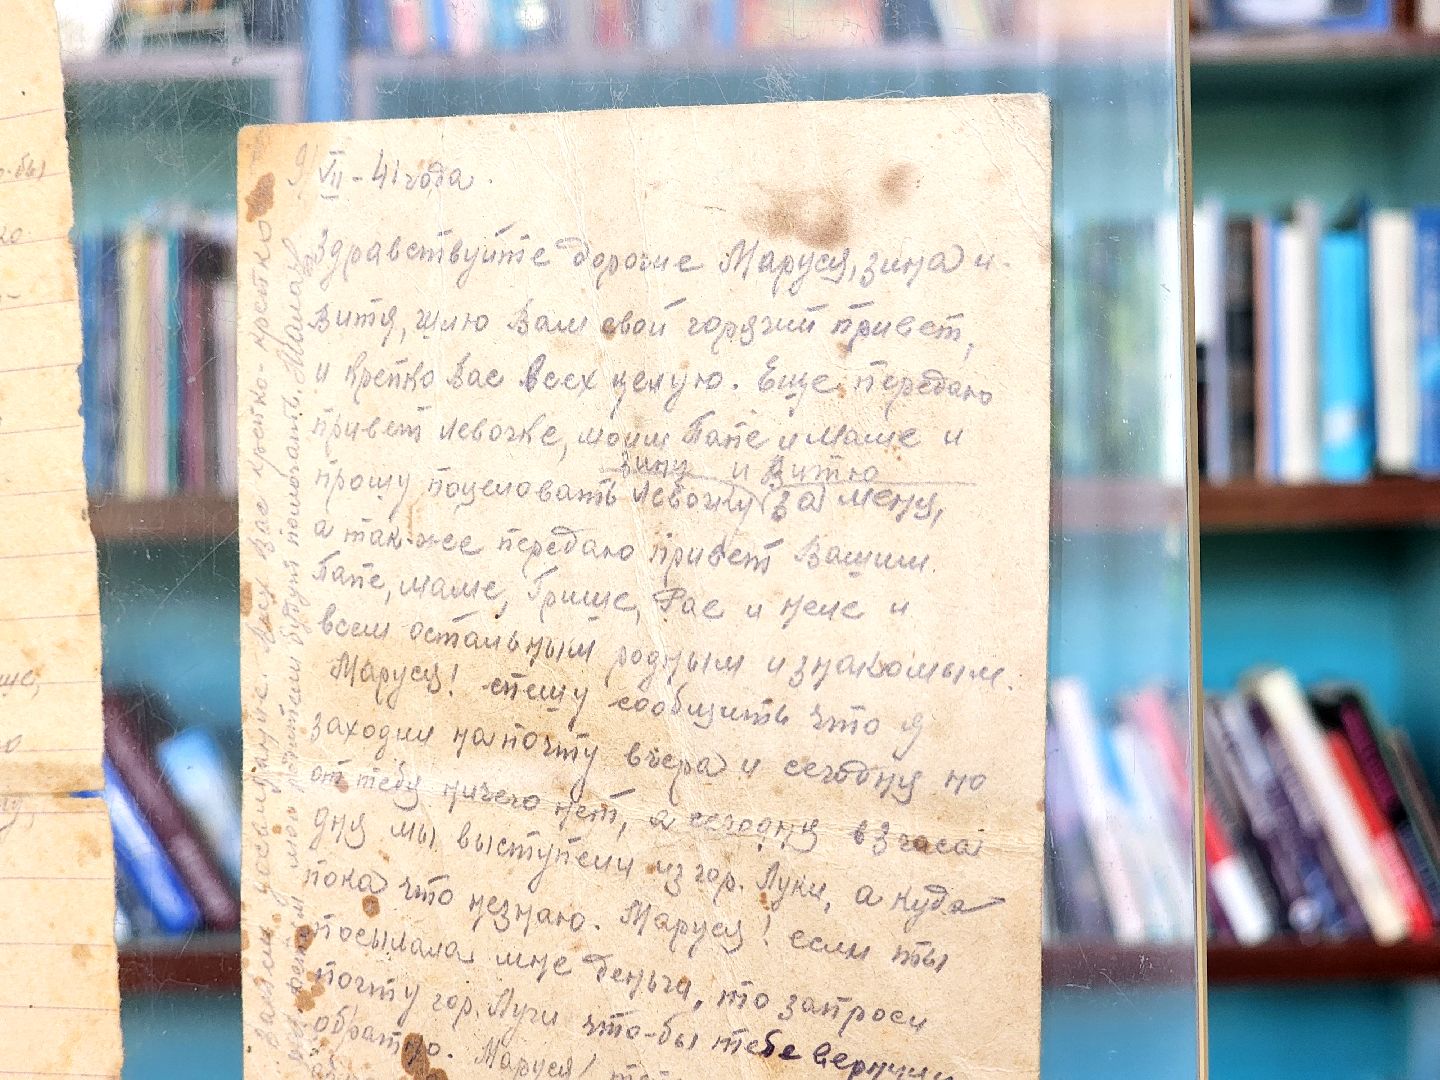 9/VII - 41 года.
Здравствуйте дорогие Маруся, Зина и
Витя, шлю Вам свой горячий привет,
и крепко Вас всех целую. Еще передаю
привет Левочке, моим Папе и Маме и
Зину и Витю
прошу поцеловать Левочку (за) меня,
а так-же передаю привет Вашим
Папе, маме, Грише, Рае и Неле и
всем остальным родным и знакомым.
Маруся! спешу сообщить что я
заходил на почту вчера и сегодня но
от тебя ничего нет, а сегодня в 3 часа
дня мы выступили из гор. Луки, а куда
пока что незнаю. Маруся! если ты
посылала мне деньги, то запроси
почту гор. Лучи что-бы тебе вернули
обратно. Маруся!
досвидание. Целую Вас крепко-крепко
мои родители будут помогать. Мама